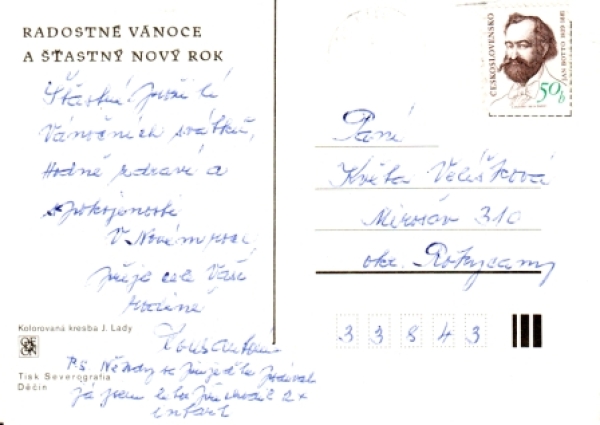 RADOSTNÉ VÁNOCE
A ŠŤASTNÝ NOVÝ ROK
Šťastné prožití
Vánočních svátků,
Hodně zdraví a
spokojenosti
V Novém roce,
přeje celé Vaší
rodině
Ps Někdy se přijeďte podívat
já jsem
infarkt
Kolorovaná kresba J. Lady
Tisk Severografia
Děčín
ČESKOSLOVENSKO
JÁN BOTTO 1829-1881
50h
Paní
Květa Velíšková
Mirošov 310
okr. Rokycany
33843